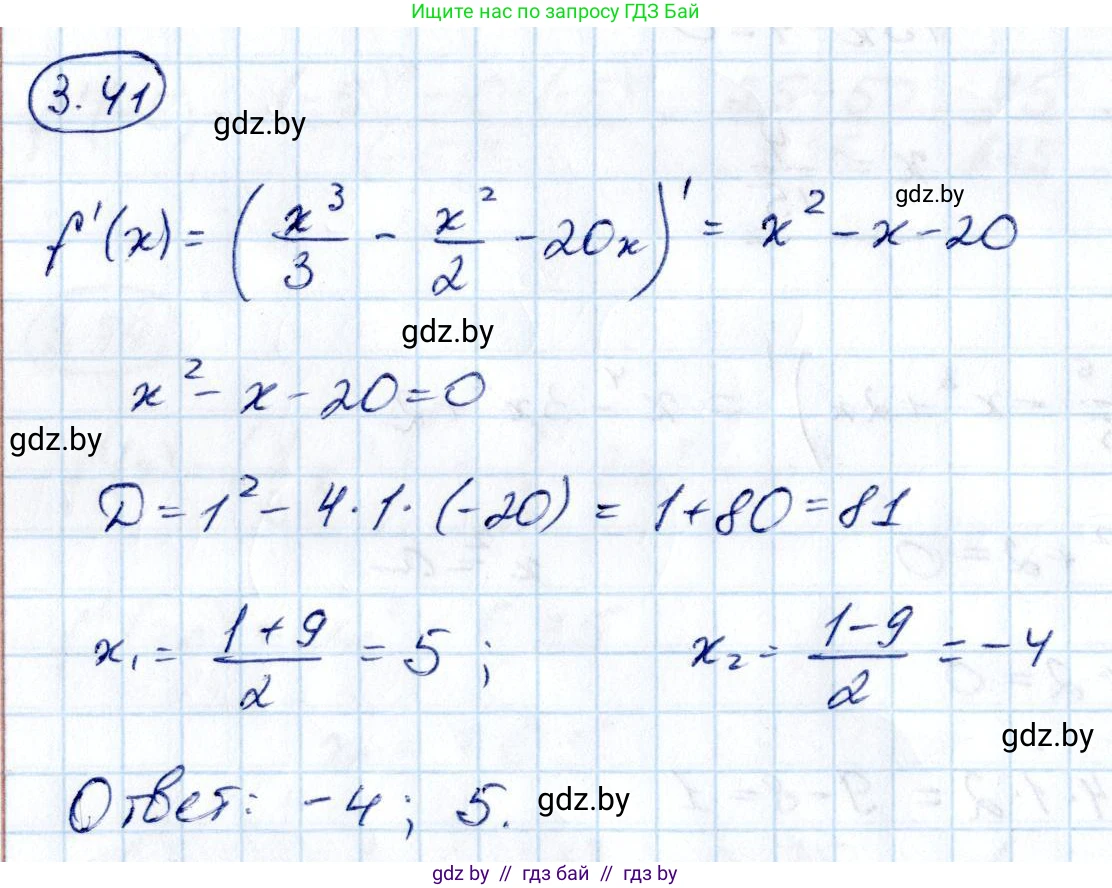 Ищите нас по запросу ГДЗ Бай
3.41
gdz.by
gdz.by
f'(x) = (x³/3 - x²/2 - 20x)' = x² - x - 20
gdz.by
x² - x - 20 = 0
gdz.by
D = 1² - 4·1·(-20) = 1+80 = 81
x₁ = (1+9)/2 = 5; x₂ = (1-9)/2 = -4
gdz.by
Ответ: -4; 5.
gdz.by
gdz.by // гдз бай // гдз by